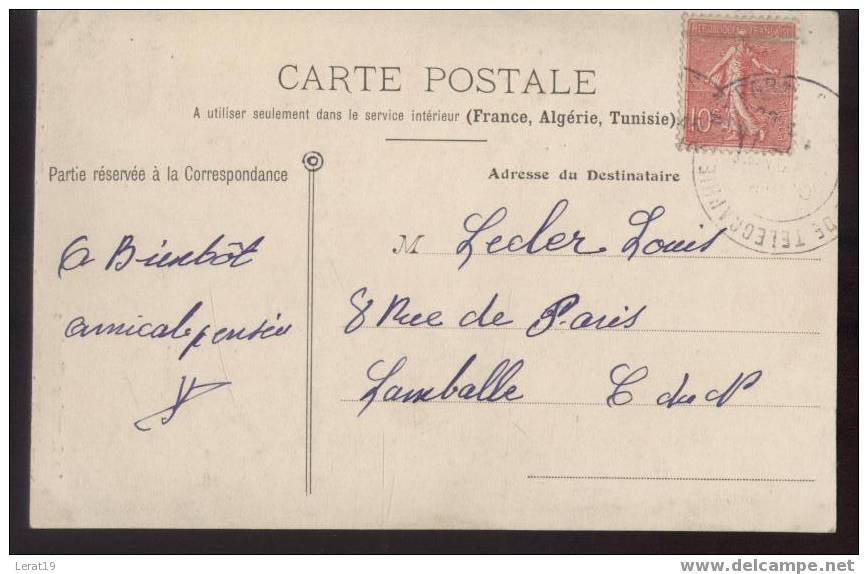 CARTE POSTALE
A utiliser seulement dans le service intérieur (France, Algérie, Tunisie).
Partie réservée à la Correspondance
Adresse du Destinataire
REPUBLIQUE FRANÇAISE
10
DE TELEGRAPHIE
A Bientôt
amicale pensée
M Lecler Louis
8 Rue de Paris
Lamballe C du N
Lerat19
delcampe.net